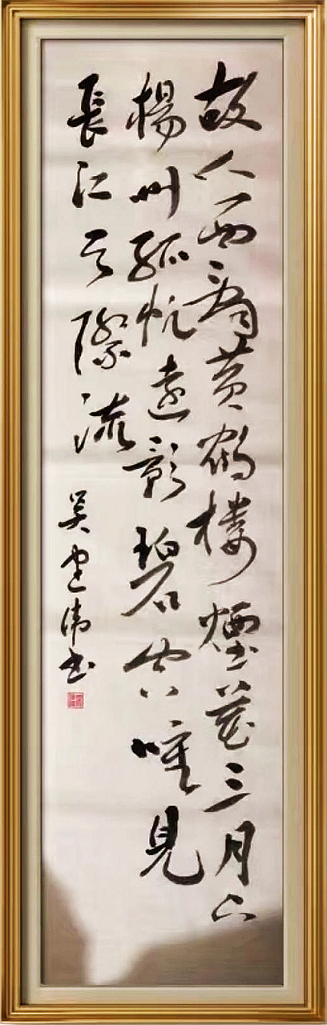 故人西辭黃鶴樓煙花三月下
楊州孤帆遠影碧空唯見
長江天際流 吴建伟书